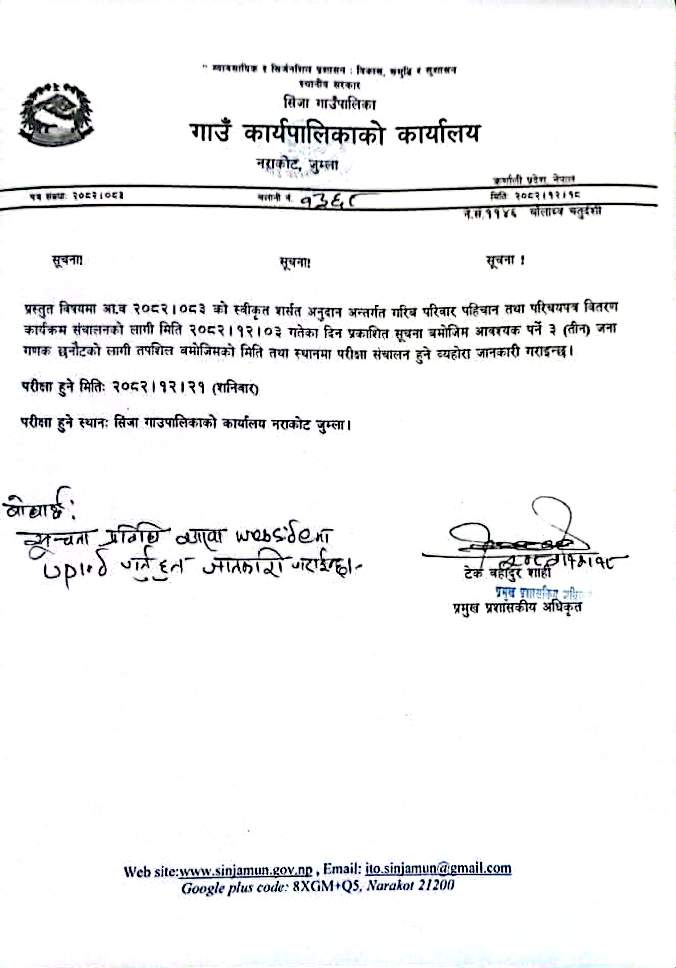 " व्यावसायिक र सिर्जनशिल प्रशासन : विकास, समृद्धि र सुशासन
स्थानीय सरकार
सिंजा गाउँपालिका
गाउँ कार्यपालिकाको कार्यालय
नराकोट, जुम्ला
कर्णाली प्रदेश, नेपाल
पत्र संख्याः २०८२।०८३ चलानी नं. १३६८ मिति २०८२।१२।१८
ने.सं.११४६ चौलाथ्व चतुर्दशी
सूचना! सूचना! सूचना !
प्रस्तुत विषयमा आ.व २०८२।०८३ को स्वीकृत शर्सत अनुदान अन्तर्गत गरिब परिवार पहिचान तथा परिचयपत्र वितरण
कार्यक्रम संचालनको लागी मिति २०८२।१२।०३ गतेका दिन प्रकाशित सूचना बमोजिम आवश्यक पर्ने ३ (तीन) जना
गणक छनौटको लागी तपशिल बमोजिमको मिति तथा स्थानमा परीक्षा संचालन हुने व्यहोरा जानकारी गराइन्छ।
परीक्षा हुने मितिः २०८२।१२।२१ (शनिबार)
परीक्षा हुने स्थानः सिंजा गाउपालिकाको कार्यालय नराकोट जुम्ला।
बोधार्थ:
सूचना प्रविधि शाखा websideमा
upload गर्नु हुन जानकारी गराईन्छ।-
२०८२।१२।१८
टेक बहादुर शाही
प्रमुख प्रशासकीय अधिकृत
प्रमुख प्रशासकीय अधिकृत
Web site:www.sinjamun.gov.np , Email: ito.sinjamun@gmail.com
Google plus code: 8XGM+Q5, Narakot 21200